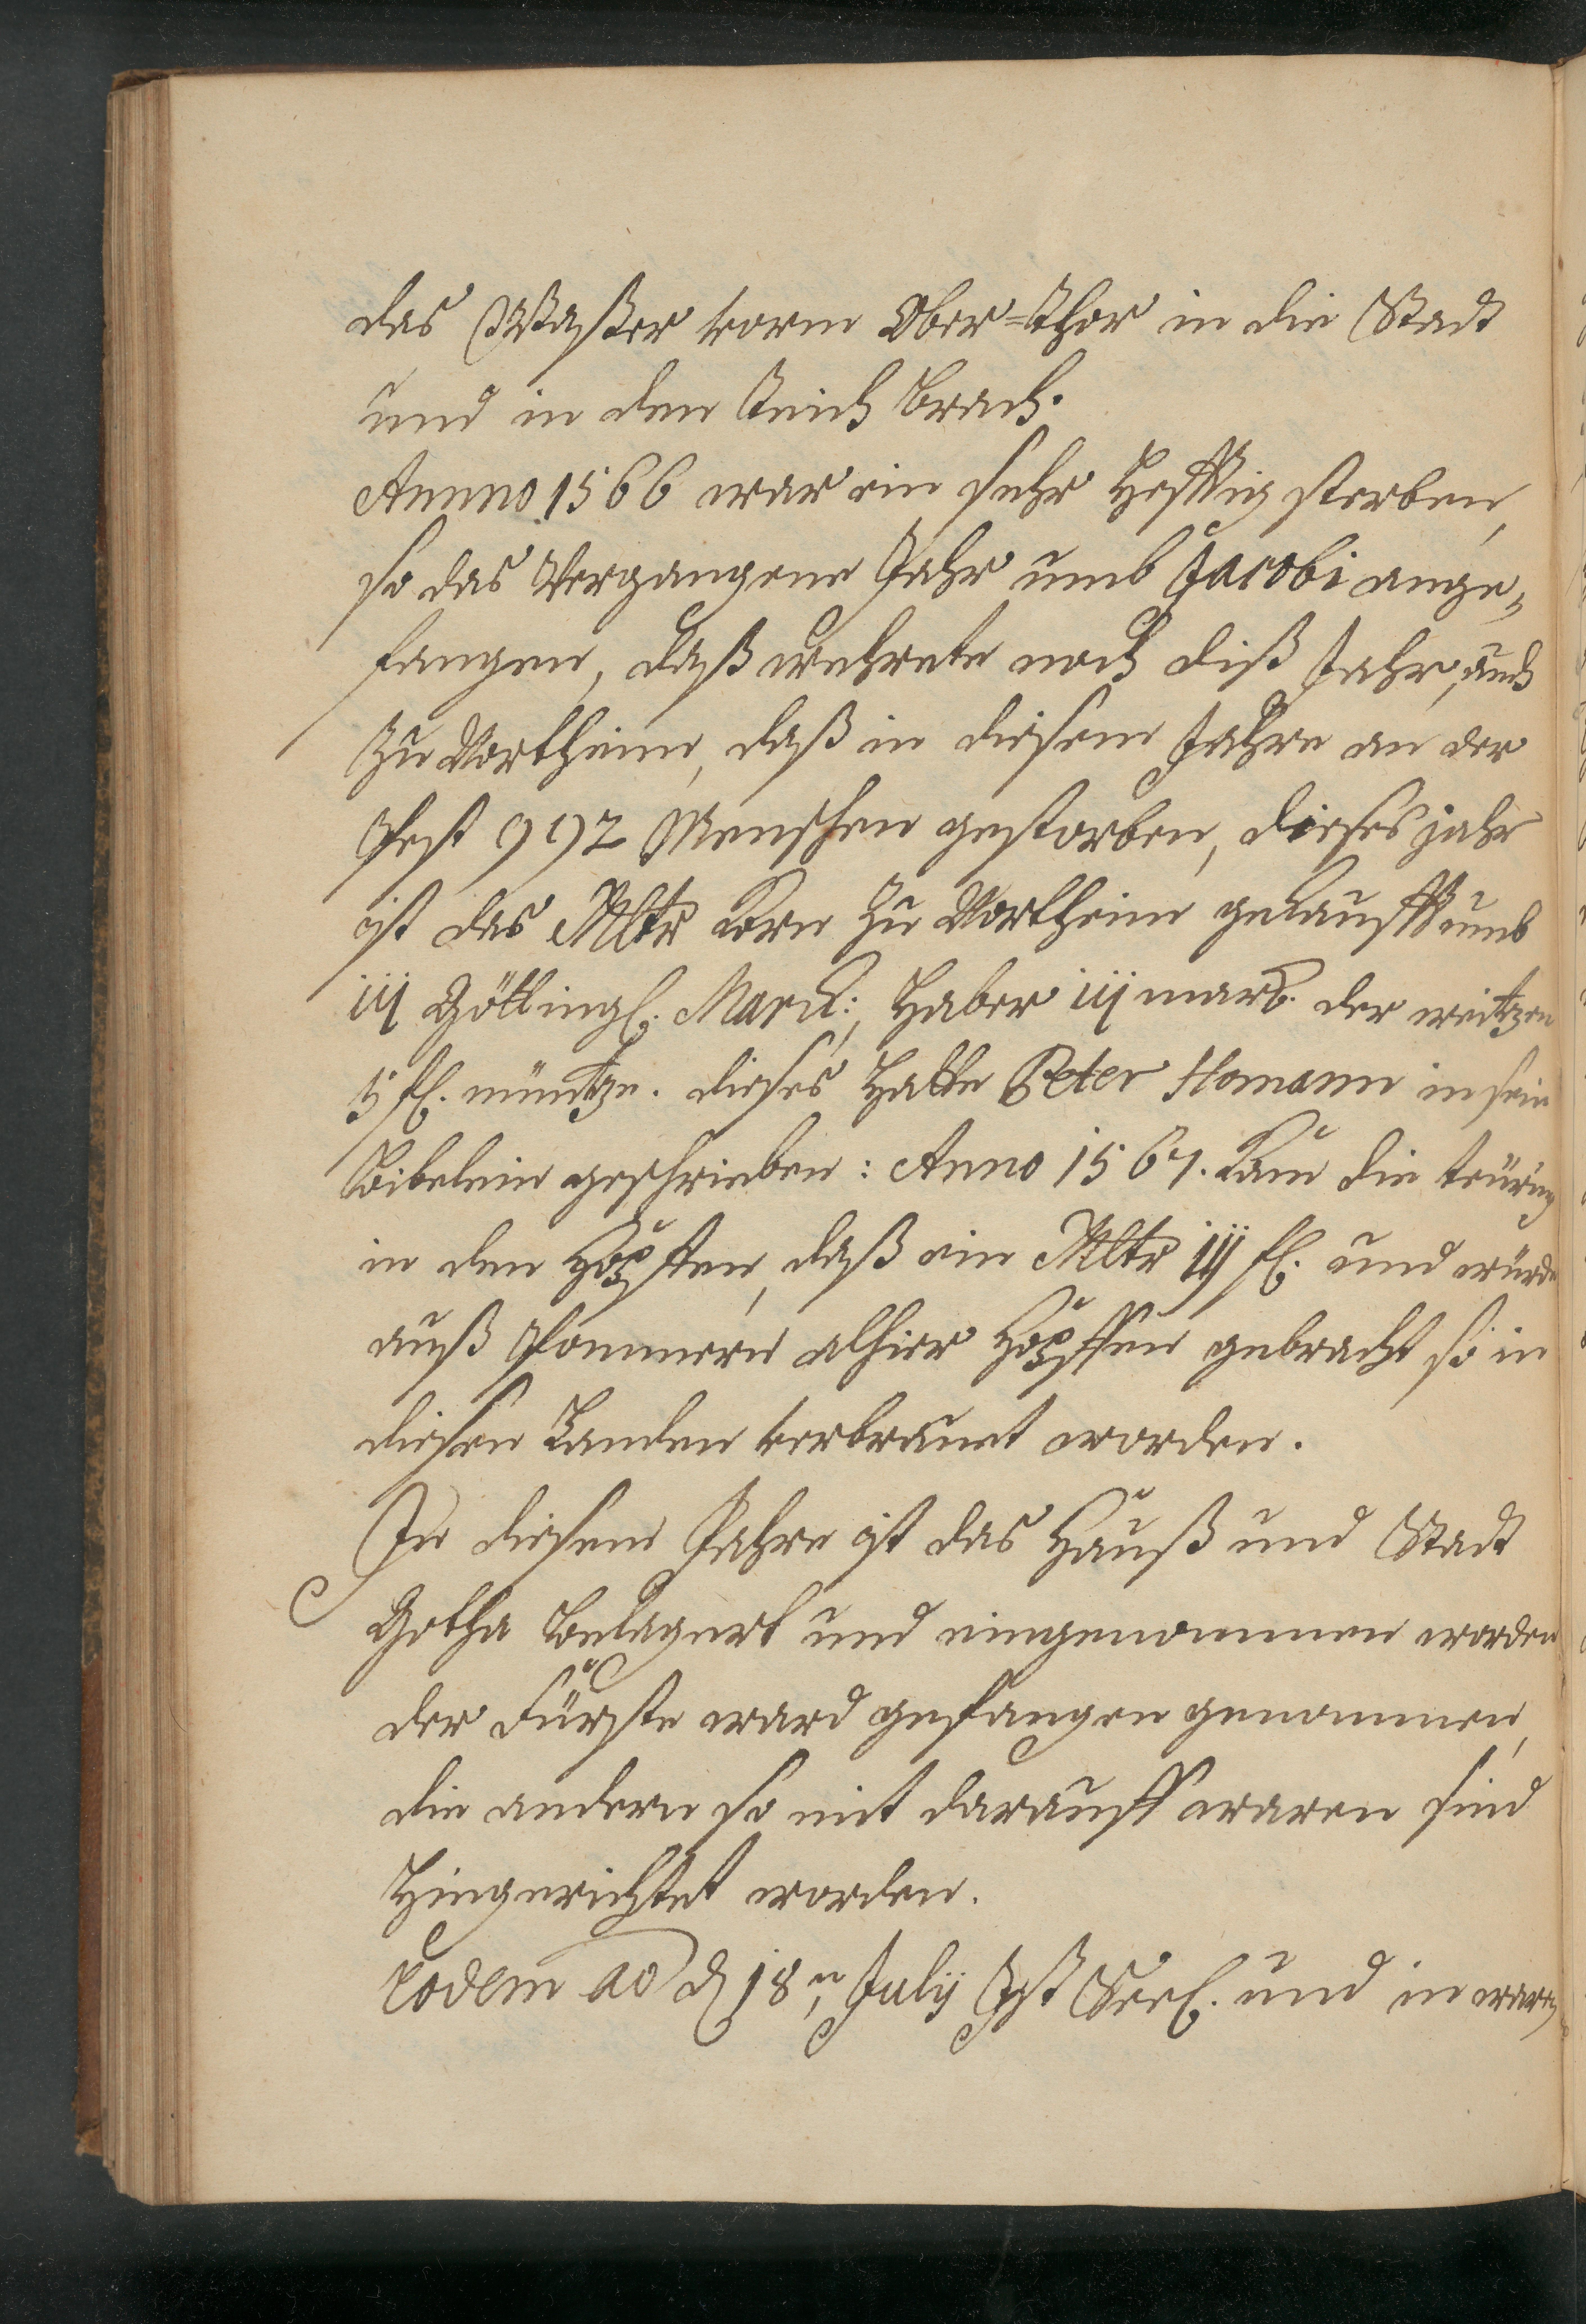 das Waßer vorm Ober=Thor in die Stadt
und in den Teich brach.
Annno 1566 war ein sehr hefftig sterben,
so das Vergangene Jahr umb Jacobi ange,,
fangen, daß wehrete noch diß Jahr, auch
zu Northeim, daß in diesem Jahre an der
Pest 992 Menschen gestorben, dieses jahr
ist das Mltr Korn zu Northeim gekaufft umb
iij Götting. Marck:, Haber iij marck. der weitzen
5 fl. müntze. dieses hatte Peter Homann in sein
Bibelein geschrieben: Anno 1567. Kam die teürung
in den Hopffen, daß ein Mltr iij fl. und würde
auß Pommern alhier Hopffen gebracht so in
diesen Landen verbrauet worden.
In diesem Jahre ist das Hauß und Stadt
Gotha belagert und eingenommen worden
der Fürste ward gefangen genommen,
die andern so mit darauff waren sind
hingerichtet worden.
Eodem ao d 18 n, Julij Ist Seel. und in